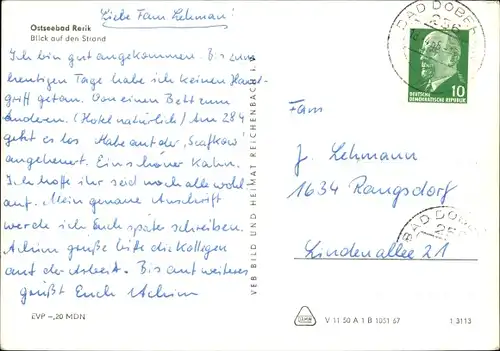 Liebe Fam. Lehmann!
Ostseebad Rerik
Blick auf den Strand
Ich bin gut angekommen. Bis zum
heutigen Tage habe ich keinen Hand-
griff getan. Von einem Bett zum
anderen. (Hotel natürlich) Am 28.4
geht es los. Habe auf der "Seafkow"
angeheuert. Ein schöner Kahn.
Ich hoffe ihr seid noch alle wohl-
auf. Mein genaue Anschrift
werde ich Euch später schreiben.
Achim grüße bitte die Kollegen
auf der Arbeit. Bis auf weiteres
grüßt Euch Achim
EVP -,20 MDN
VEB BILD UND HEIMAT REICHENBACH I. V.
BAD DOBER
256
DEUTSCHE
DEMOKRATISCHE REPUBLIK
10
Fam
J. Lehmann
1634 Rangsdorf
BAD DOBER
256
Lindenallee 21
V 11 50 A 1 B 1051 67
1 3113